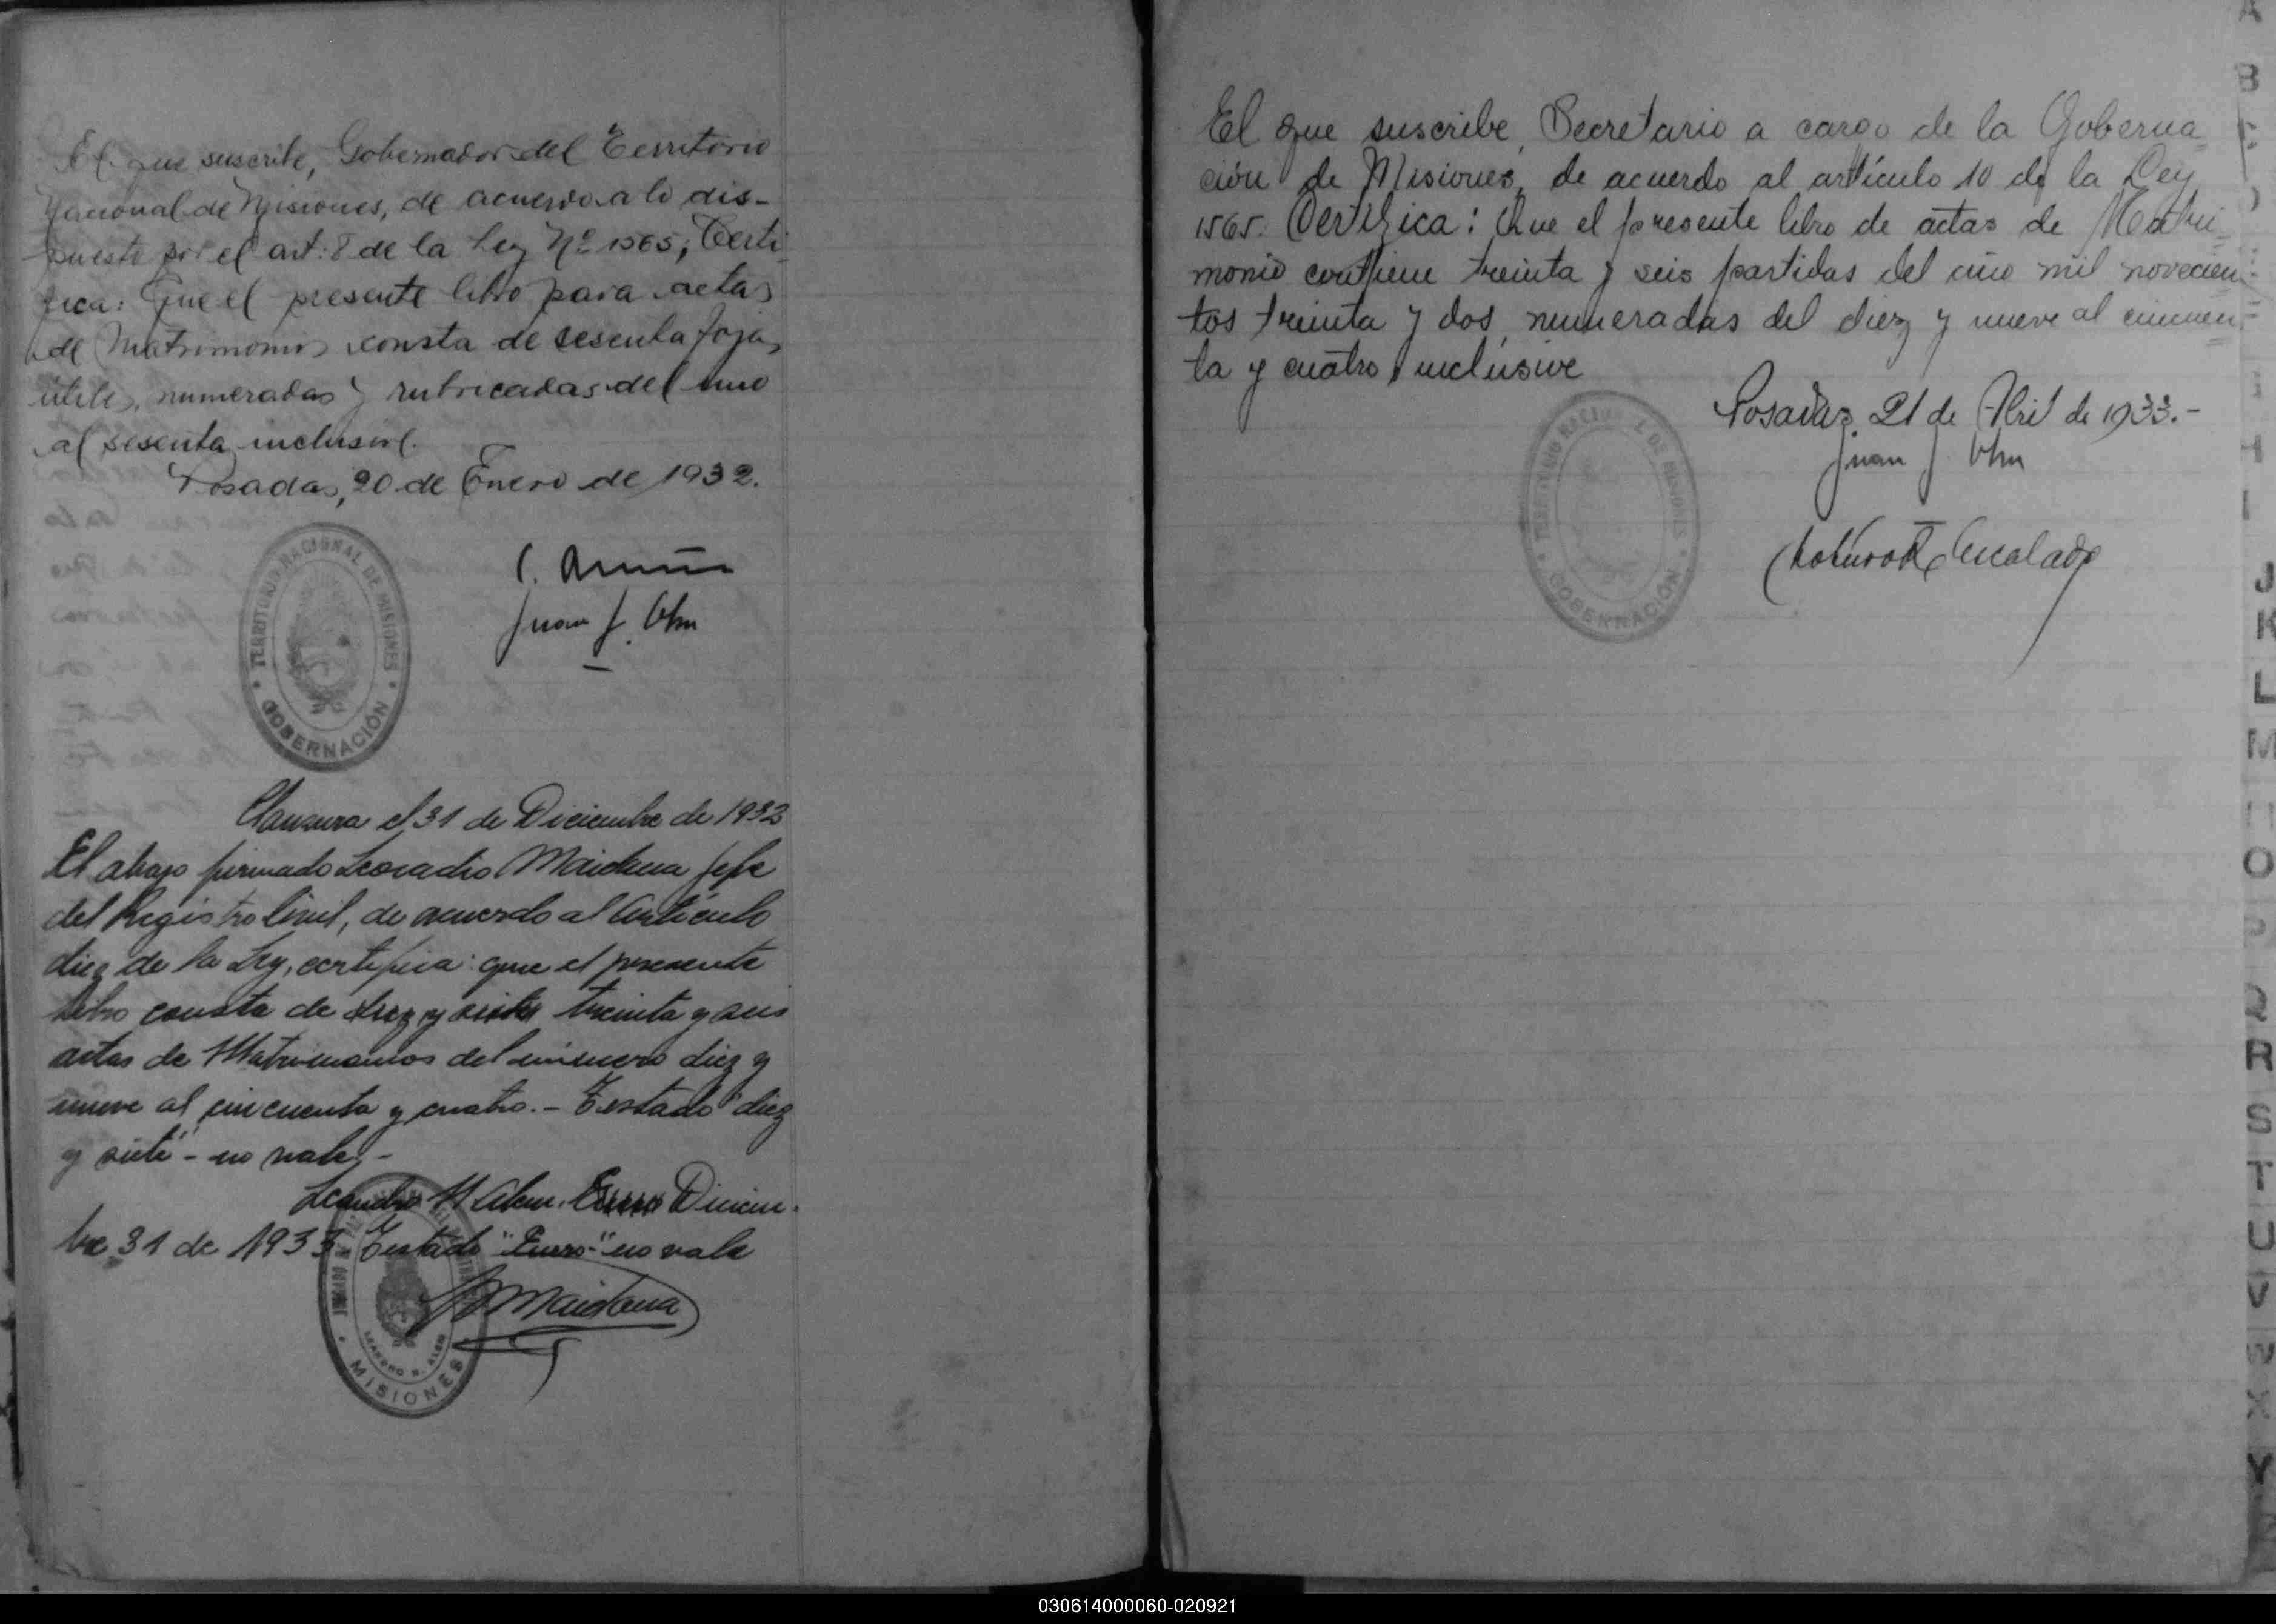 El que suscribe, Gobernador del Territorio
Nacional de Misiones, de acuerdo a lo dis-
puesto por el art: 8 de la Ley Nº 1565; Certi
fica: Que el presente libro para actas
de Matrimonios consta de sesenta fojas
útiles, numeradas y rubricadas del uno
al sesenta inclusive.
Posadas, 20 de Enero de 1932.
TERRITORIO NACIONAL DE MISIONES
GOBERNACIÓN
Juan J.
Clausura el 31 de Diciembre de 1932
El abajo firmado Leocadio Maidana Jefe
del Registro Civil, de acuerdo al Artículo
diez de la Ley, certifica: que el presente
libro consta de diez y siete treinta y seis
actas de Matrimonios del número diez y
nueve al cincuenta y cuatro.- Testado "diez
y siete" - no vale. -
Leandro N Alem. Enero Diciem-
bre 31 de 1933 Testado "Enero" no vale
Maidana
LEANDRO N. ALEM
MISIONES
El que suscribe, Secretario a cargo de la Goberna=
ción de Misiones, de acuerdo al artículo 10 de la Ley
1565. Certifica: Que el presente libro de actas de Matri=
monio contiene treinta y seis partidas del año mil novecien=
tos treinta y dos, numeradas del diez y nueve al cincuen=
ta y cuatro inclusive
Posadas, 21 de Abril de 1933.-
Juan J.
TERRITORIO NACIONAL DE MISIONES
GOBERNACIÓN
Escalada
A
B
C
I
J
K
L
M
O
P
Q
R
S
T
U
V
W
X
Y
Z
030614000060-020921